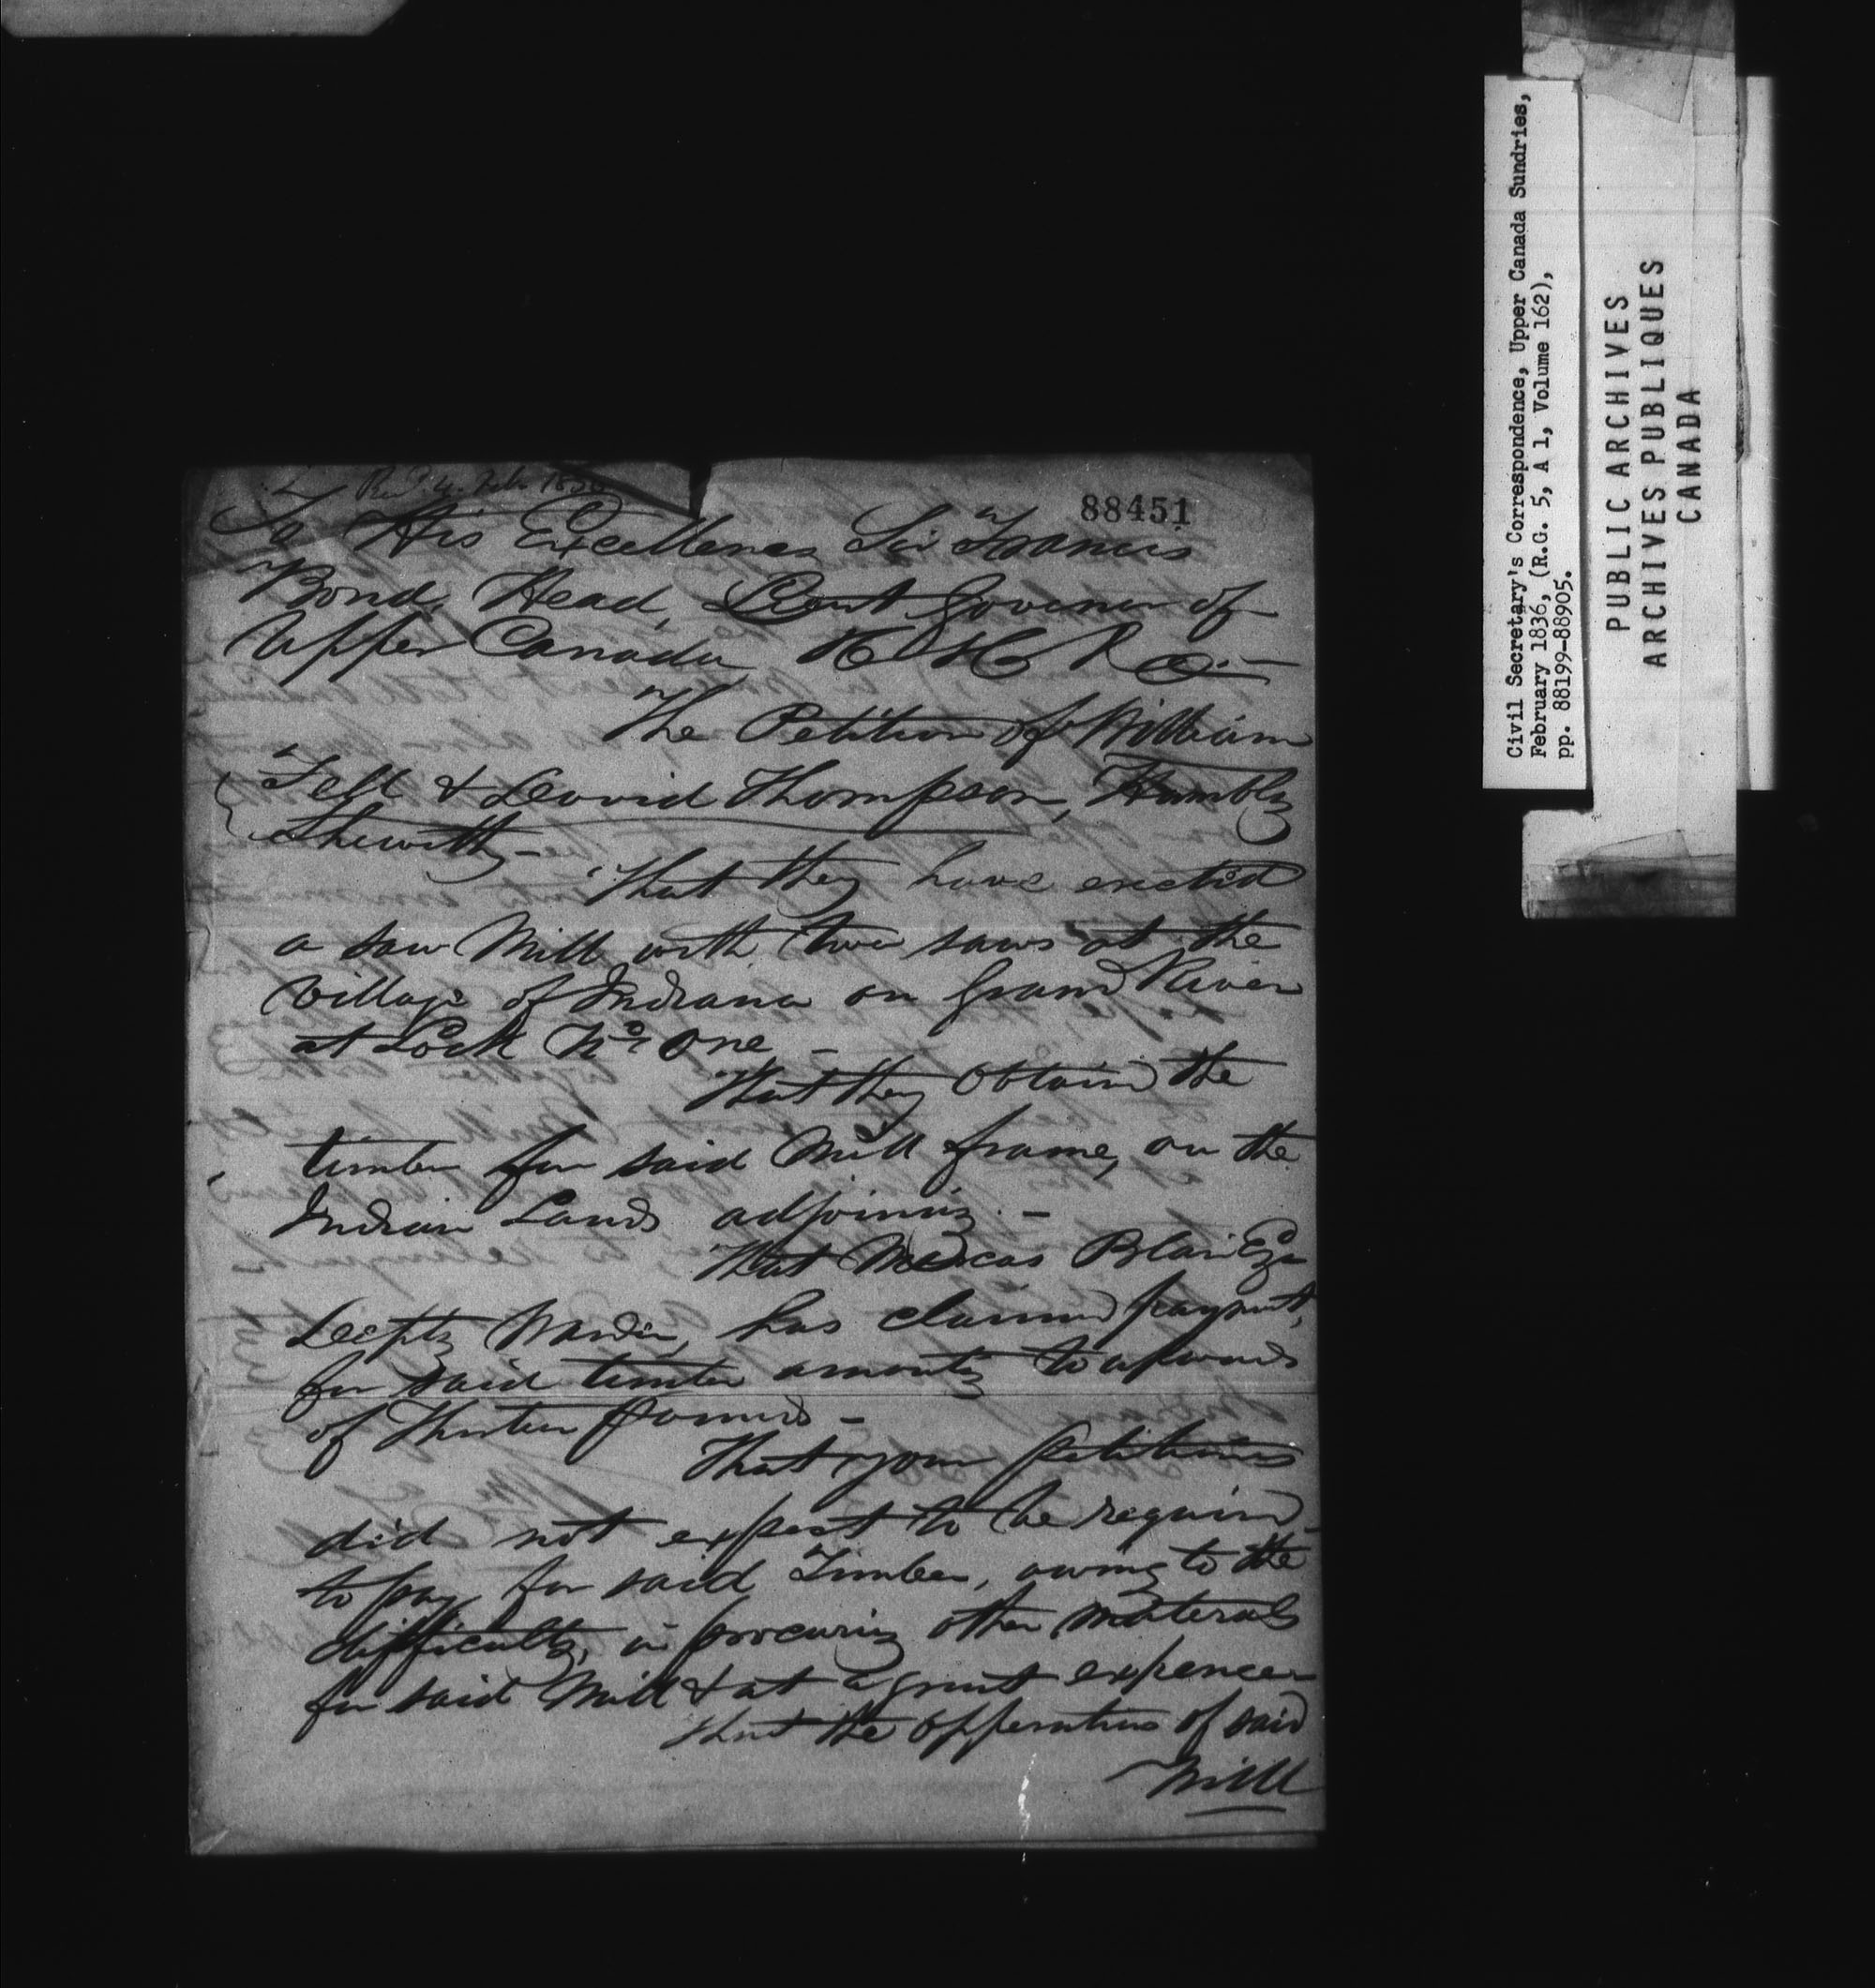 Recd. 4. Feb 1836
88451
To His Excellency Sir Francis
Bond, Head, Lieut Govenor of
Upper Canada K C H &c.
The Petition of William
Fell & David Thompson, Humbly
Shewith -
That they have erected
a saw Mill with two saws at the
Village of Indiana on Grand River
at Lock No. One -
That they Obtained the
timber for said Mill frame, on the
Indian Lands adjoining. -
That Marcus Blair Esqr
Deepty Warden, has claimed payment,
for said timber amountg to upwards
of Thirteen pounds -
That your petitioners
did not expect to be required
to pay for said Timber, owing to the
difficulty, in procuring other materials
for said Mill & at a great expence
that the opperations of said
Mill
Civil Secretary's Correspondence, Upper Canada Sundries,
February 1836, (R.G. 5, A 1, Volume 162),
pp. 88199-88905.
PUBLIC ARCHIVES
ARCHIVES PUBLIQUES
CANADA